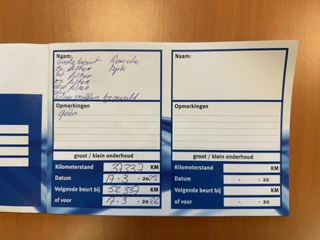 Naam:
Grote beurt Remolie
filter Apk
filter
filter
filter
Opmerkingen
geen
groot / klein onderhoud
Kilometerstand 37337 KM
Datum 17-3 - 2025
Volgende beurt bij 52337 KM
of voor 17-3 - 2026
Naam:
Opmerkingen
groot / klein onderhoud
Kilometerstand KM
Datum - - 20
Volgende beurt bij KM
of voor - - 20